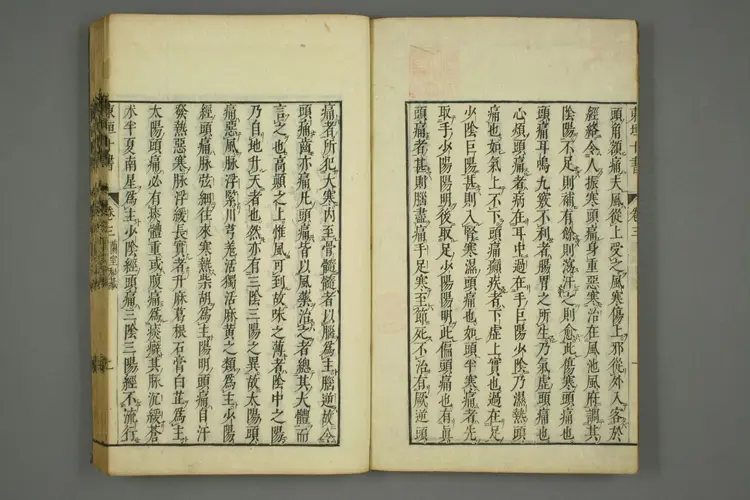 頭角額痛夫風從上受之風寒傷上邪從外入客於
經絡令人振寒頭痛身重惡寒治在風池風府調其
陰陽不足則補有餘則瀉汗之則愈此傷寒頭痛也
頭痛耳鳴九竅不利者腸胃之所生乃氣虛頭痛也
心煩頭痛者病在耳中過在手巨陽少陰乃濕熱頭
痛也如氣上不下頭痛癲疾者下虛上實也過在足
少陰巨陽甚則入腎寒濕頭痛也如頭半寒痛者先
取手少陽陽明後取足少陽陽明此偏頭痛也有眞
頭痛者甚則腦盡痛手足寒至節死不治有厥逆頭
東垣十書
卷三
痛者所犯大寒内至骨髓髓者以腦爲主腦逆故令
頭痛齒亦痛凡頭痛皆以風藥治之者總其大體而
言之也高巔之上惟風可到故味之薄者陰中之陽
乃自地升天者也然亦有三陰三陽之異故太陽頭
痛惡風脉浮緊川芎羌活獨活麻黄之類爲主少陽
經頭痛脉弦細往來寒熱柴胡爲主陽明頭痛自汗
發熱惡寒脉浮緩長實者升麻葛根石膏白芷爲主
太陽頭痛必有痰體重或腹痛爲痰癖其脉沉緩蒼
朮半夏南星爲主少陰經頭痛三陰三陽經不流行
東垣十書
卷三
蘭室秘藏